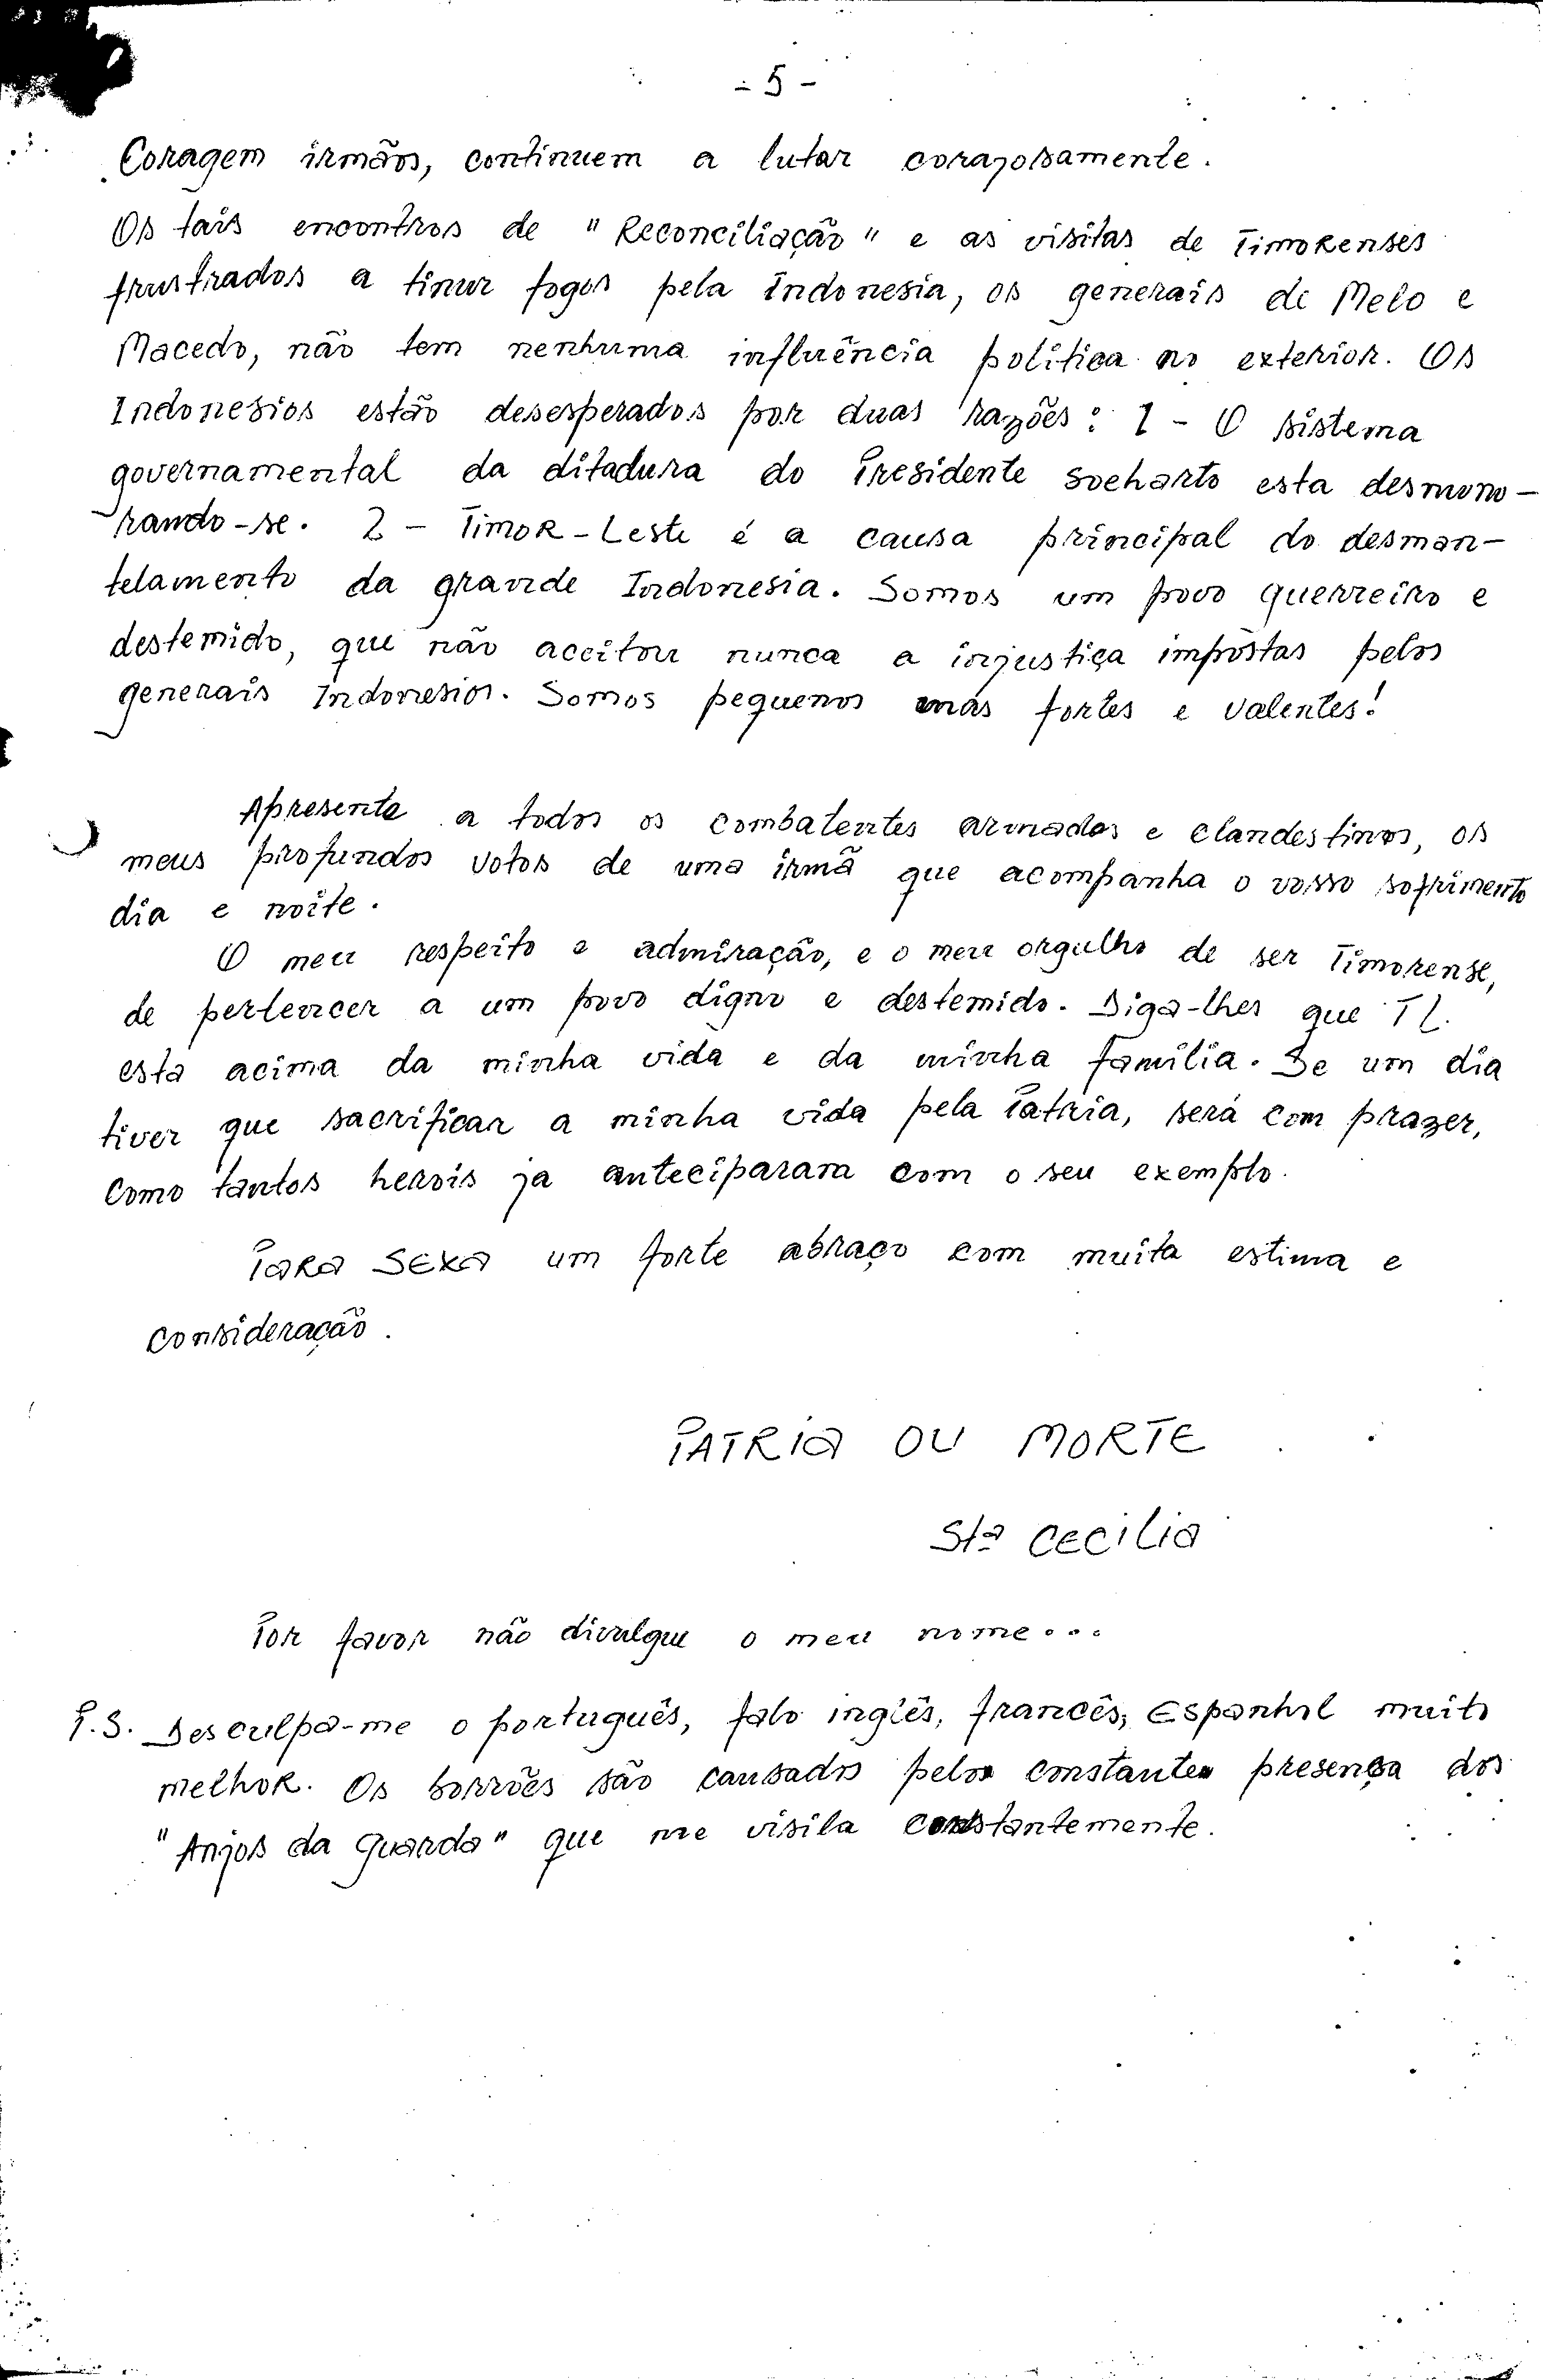 - 5 -
Coragem irmãos, continuem a lutar corajosamente.
Os tais encontros de "Reconciliação" e as visitas de Timorenses
frustrados a tirur fogos pela Indonesia, os generais de Melo e
Macedo, não tem nenhuma influência politica no exterior. Os
Indonesios estão desesperados por duas razões: 1 - O sistema
governamental da ditadura do Presidente Soeharto esta desmoro-
rando-se. 2 - Timor-Leste é a causa principal do desman-
telamento da grande Indonesia. Somos um povo guerreiro e
destemido, que não aceitou nunca a injustiça impostas pelos
generais Indonesios. Somos pequenos mas fortes e valentes!
Apresenta a todos os combatentes armados e clandestinos, os
meus profundos votos de uma irmã que acompanha o vosso sofrimento
dia e noite.
O meu respeito e admiração, e o meu orgulho de ser Timorense,
de pertencer a um povo digno e destemido. Diga-lhes que TL.
esta acima da minha vida e da minha familia. Se um dia
tiver que sacrificar a minha vida pela Patria, será com prazer,
como tantos herois ja anteciparam com o seu exemplo.
Para SEXA um forte abraço com muita estima e
consideração.
PATRIA OU MORTE
Sta Cecilia
Por favor não divulgue o meu nome...
P.S. Desculpa-me o português, falo inglês, francês, Espanhol muito
melhor. Os borrões são causados pela constante presença dos
"Anjos da Guarda" que me visita constantemente.